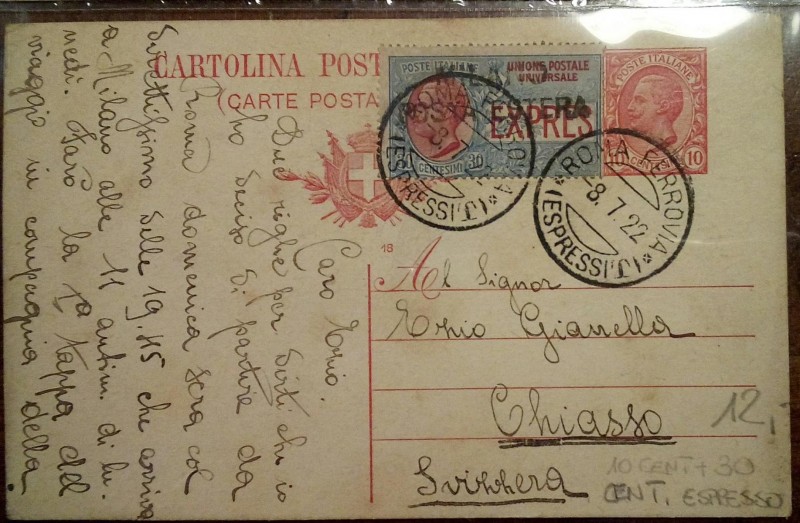 CARTOLINA POST
(CARTE POSTA
POSTE ITALIANE
UNIONE POSTALE
UNIVERSALE
EXPRES
30 CENTESIMI 30
POSTE ITALIANE
10 CENTESIMI 10
ROMA FERROVIA
(ESPRESSI)
ROMA FERROVIA
8.7.22
(ESPRESSI)
18
Al Signor
Ezio Gianella
Chiasso
Svizzera
12,
10 CENT + 30
CENT. ESPRESSO
Caro Ezio.
Due righe per dirti che io
ho deciso di partire da
Roma domenica sera col
direttissimo delle 19.45 che arriva
a Milano alle 11 antim. di lu-
nedì. Farò la 1ª tappa del
viaggio in compagnia della